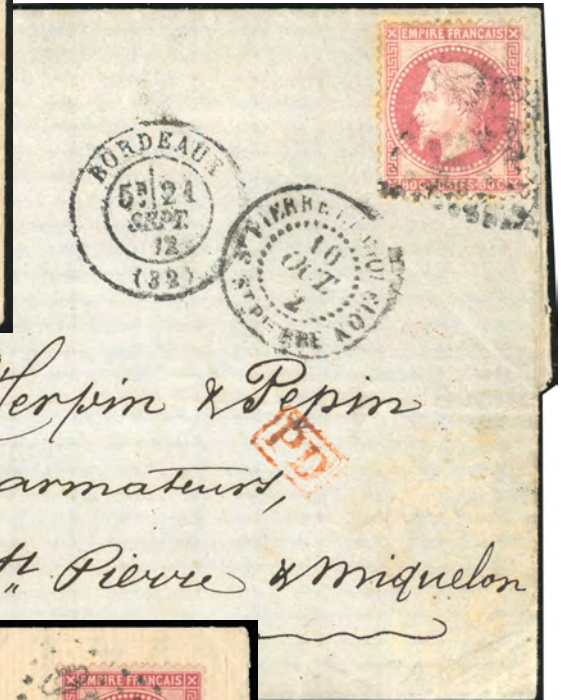 EMPIRE FRANCAIS
80 C
80 C
BORDEAUX
5E 21
SEPT.
72
(32)
ST PIERRE
16
OCT.
2
ST PIERRE
Herpin & Pepin
PD
armateurs,
St Pierre & Miquelon
EMPIRE FRANCAIS